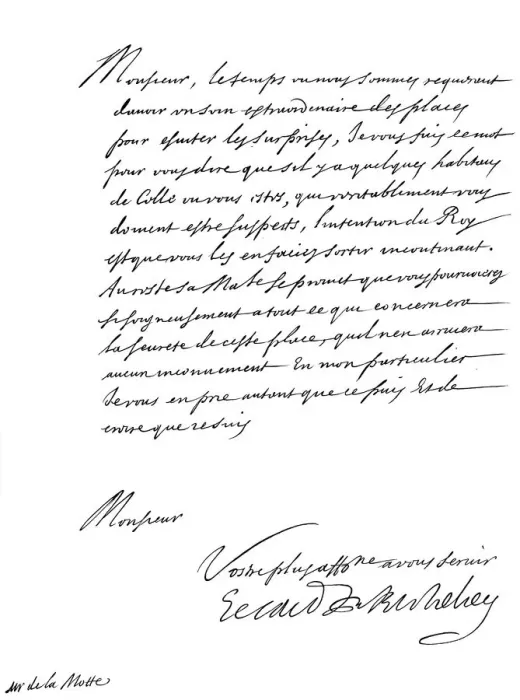 Monsieur, le temps ou nous sommes requerant
davoir un soin extraordinaire des places
pour esuiter les surprises, Je vous fais ce mot
pour vous dire que sil y a quelques habitans
de Celle ou vous estes, que veritablement vous
doiuent estre suspects, lintention du Roy
est que vous les en faciez sortir incontinant.
Au reste sa Ma.te se promet que vous pouruoirez
si soigneusement a tout ce que concernera
la seureté de ceste place, quil nen arriuera
aucun inconuenient En mon particulier
Je vous en prie autant que ie puis Et de
croire que ie suis
Monsieur
Vostre plus affo.ne a vous seruir
Le Card. de Richelieu
de la Motte